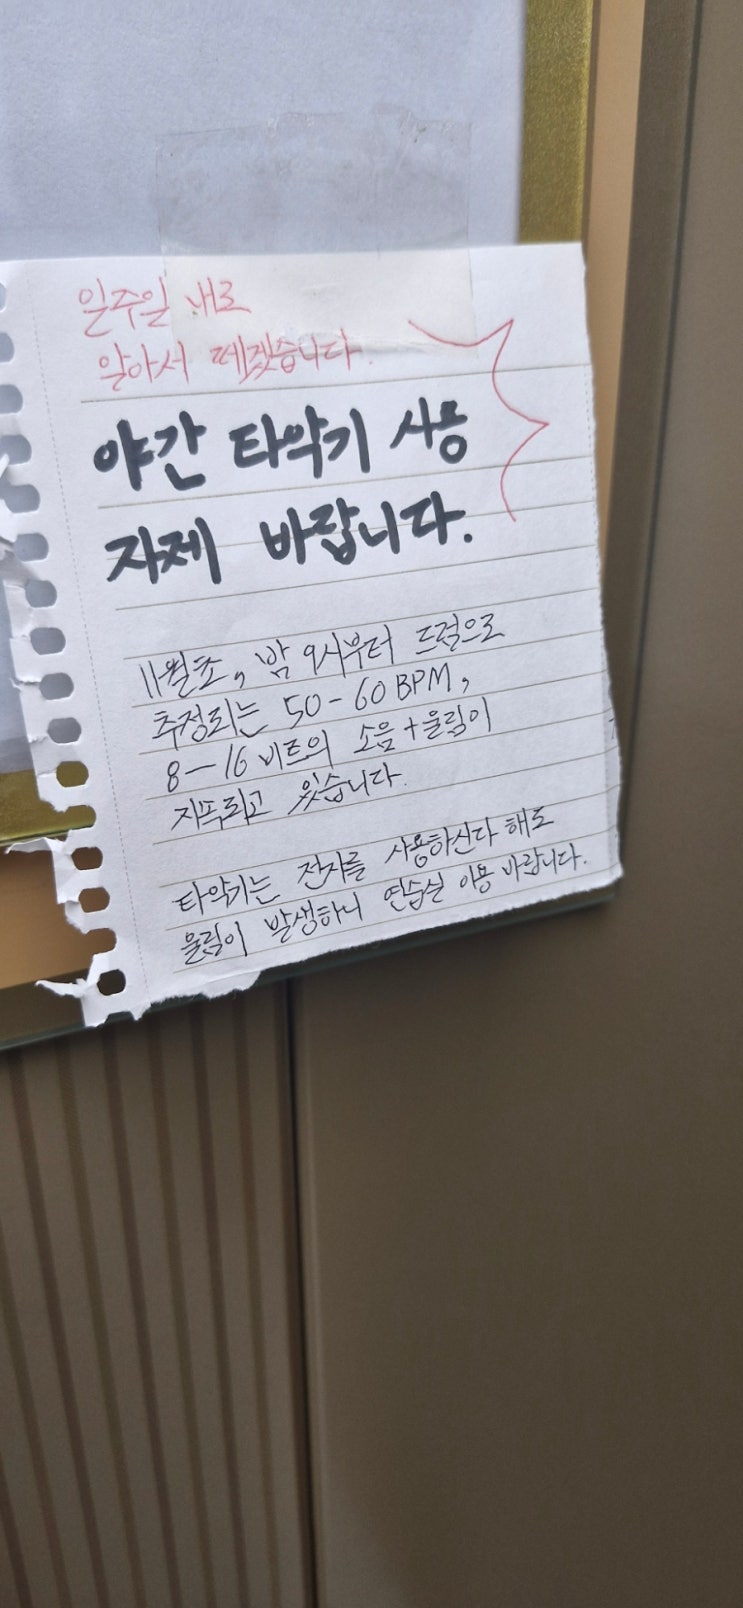 일주일 내로
알아서 떼겠습니다.
야간 타악기 사용
자제 바랍니다.
11월초, 밤 9시부터 드럼으로
추정되는 50-60BPM,
8-16비트의 소음+울림이
지속되고 있습니다.
타악기는 전자를 사용하신다 해도
울림이 발생하니 연습실 이용 바랍니다.